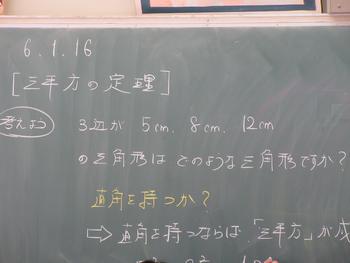 6.1.16
[三平方の定理]
考えよう 3辺が 5cm. 8cm. 12cm
の三角形は どのような三角形ですか?
直角を持つか?
⇨ 直角を持つならば「三平方」が成